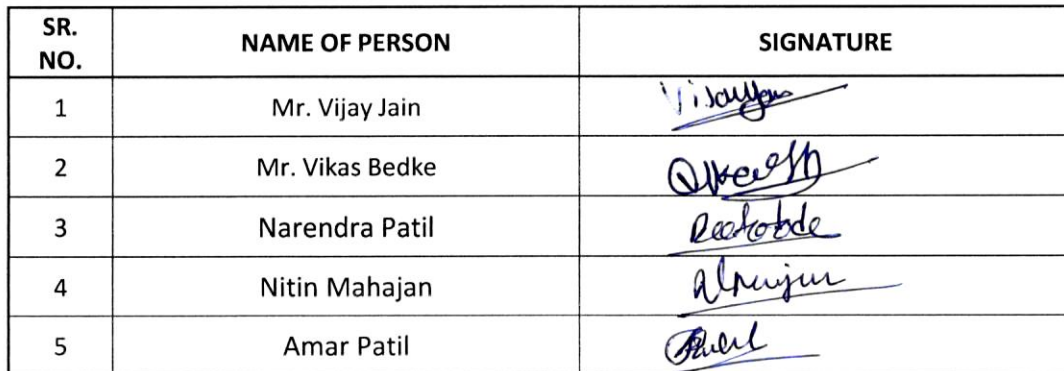 SR. NO. NAME OF PERSON SIGNATURE
1 Mr. Vijay Jain
2 Mr. Vikas Bedke
3 Narendra Patil
4 Nitin Mahajan
5 Amar Patil